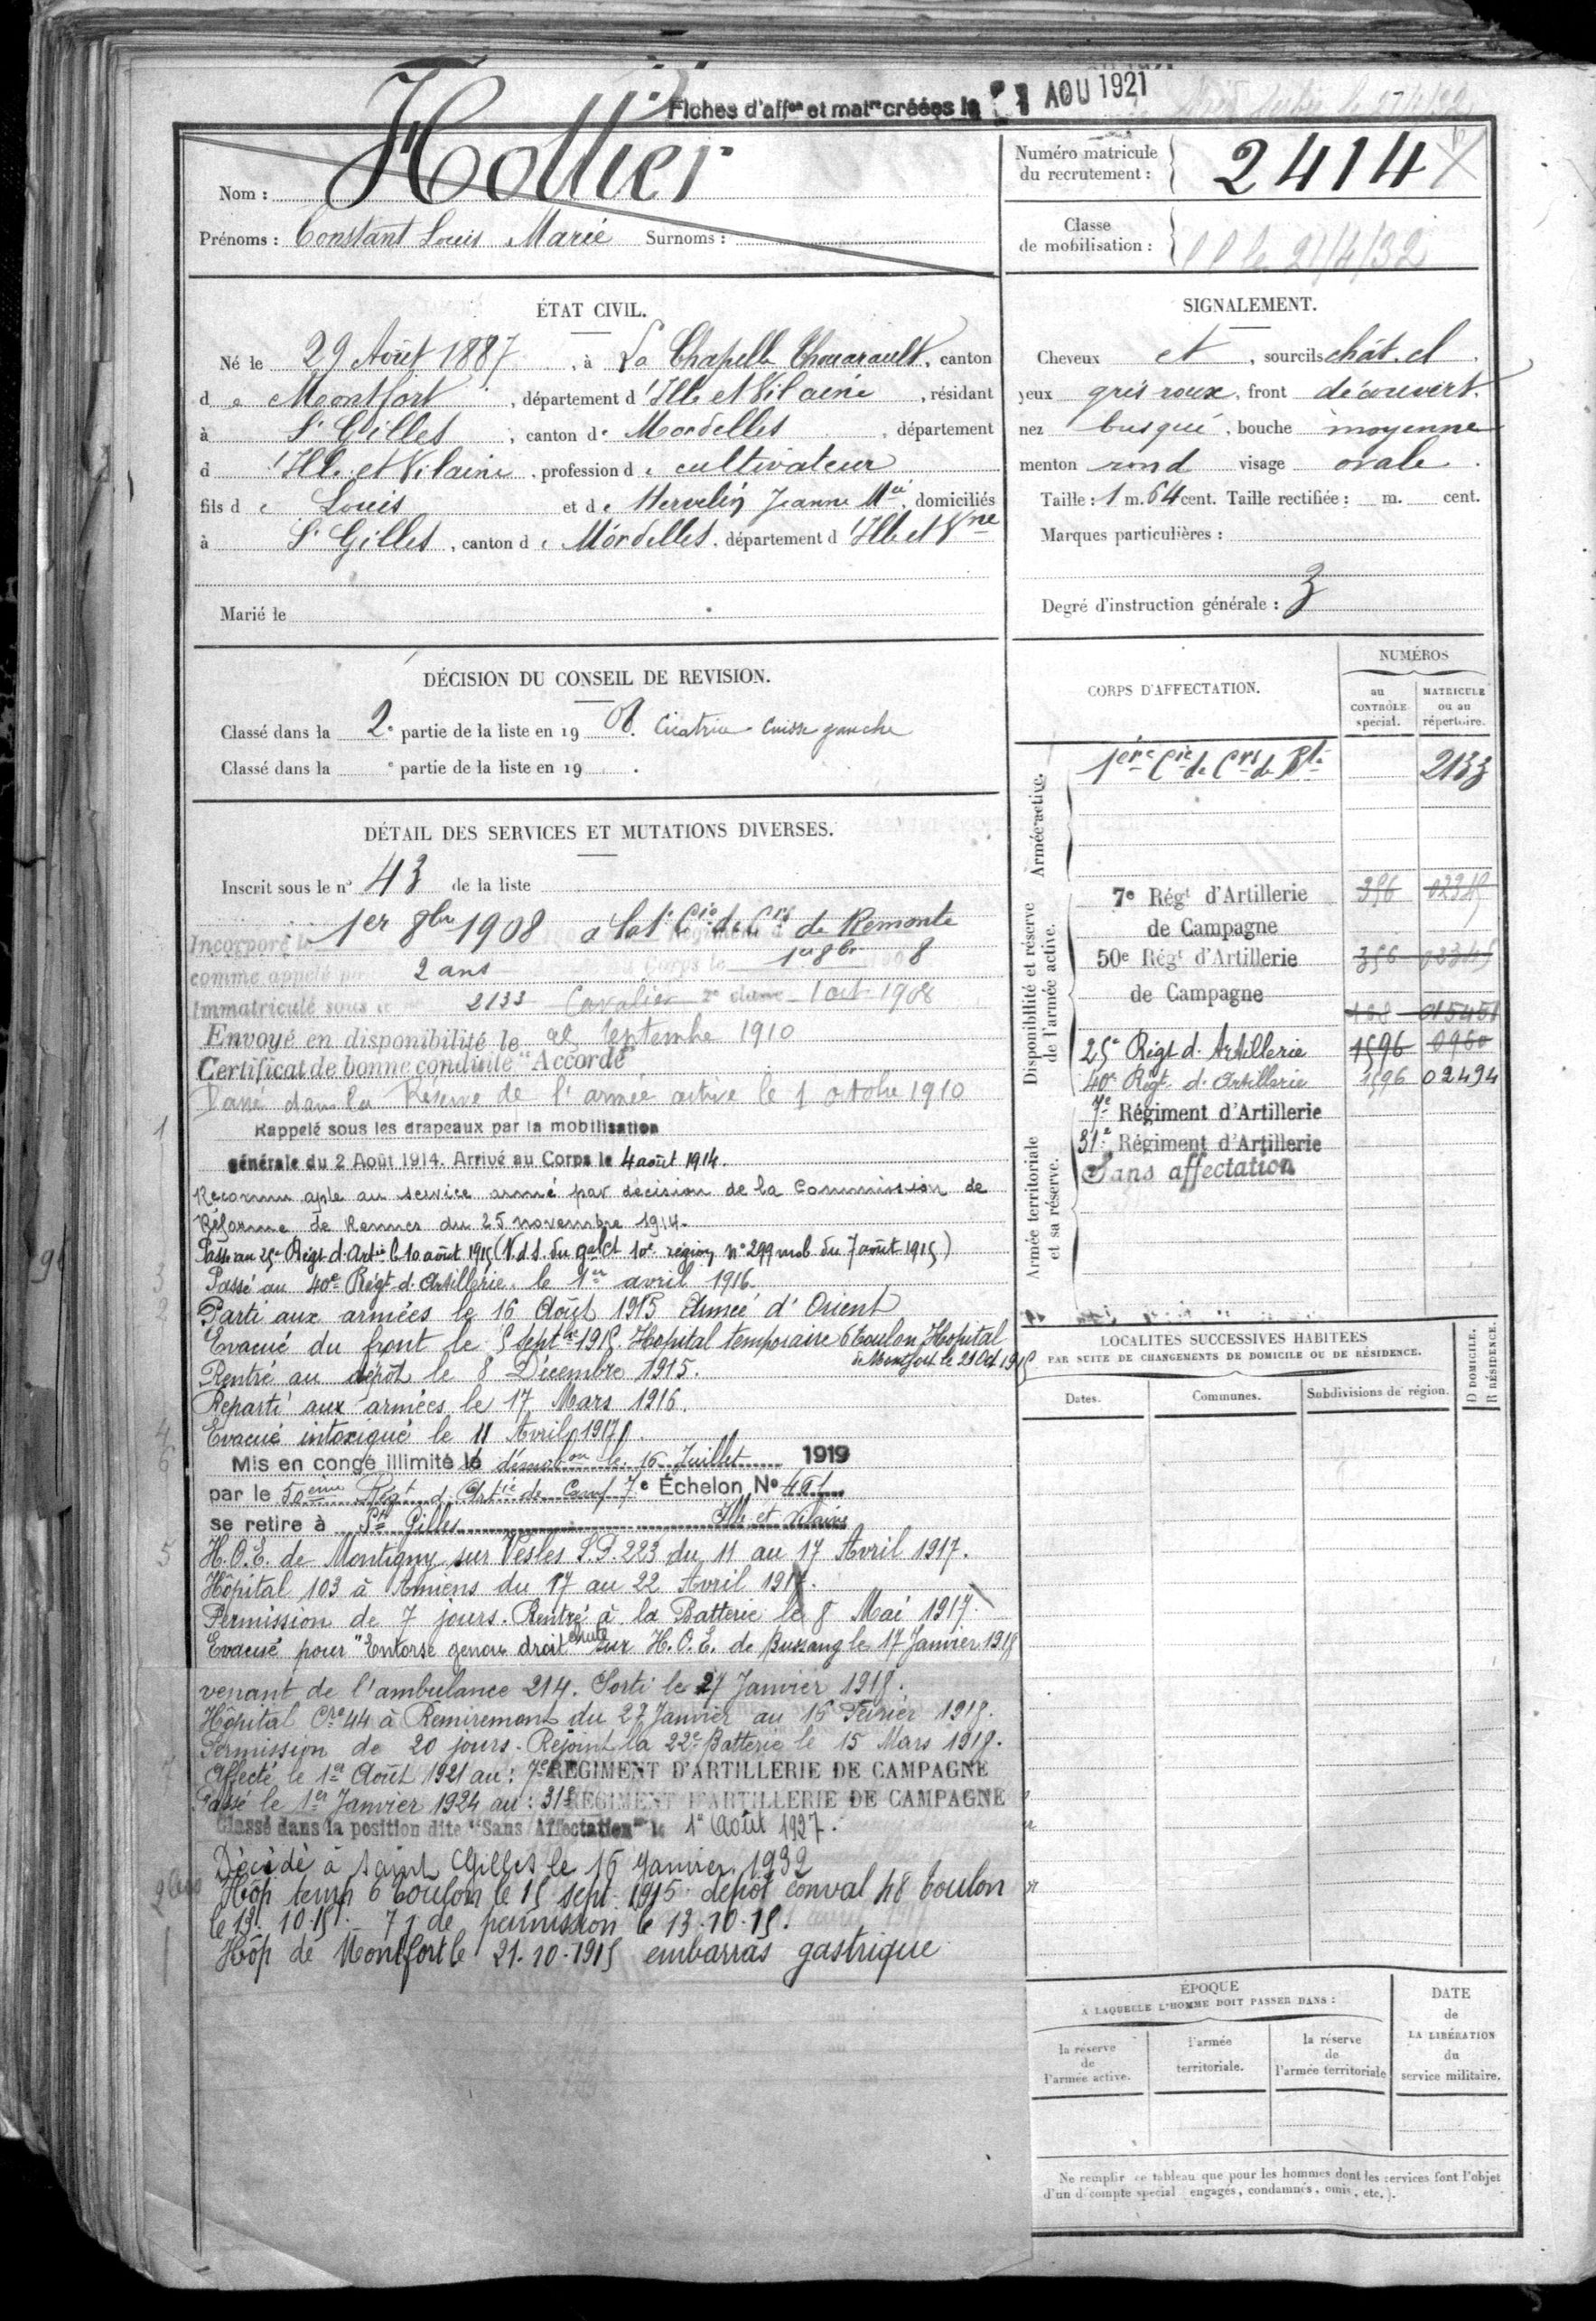 Fiches d'affon et matre créées le AOU 1921
Nom : Hollier
Prénoms : Constant Louis Marie Surnoms :
Numéro matricule
du recrutement : 2414
Classe
de mobilisation : le 21/4/32
ÉTAT CIVIL.
Né le 29 Août 1887, à La Chapelle Thouarault, canton
de Montfort, département d'Ille et Vilaine, résidant
à St Gilles, canton de Mordelles, département
d'Ille et Vilaine, profession de cultivateur
fils de Louis et de Hervelin Jeanne Mie, domiciliés
à St Gilles, canton de Mordelles, département d'Ille et Vne
Marié le
SIGNALEMENT.
Cheveux et, sourcils chât. cl.
yeux gris roux, front découvert.
nez busqué, bouche moyenne
menton rond visage ovale.
Taille : 1 m. 64 cent. Taille rectifiée : m. cent.
Marques particulières :
Degré d'instruction générale : 3
DÉCISION DU CONSEIL DE REVISION.
Classé dans la 2e partie de la liste en 1908. Cicatrice cuisse gauche
Classé dans la e partie de la liste en 19 .
DÉTAIL DES SERVICES ET MUTATIONS DIVERSES.
Inscrit sous le n° 43 de la liste
Incorporé le 1er 8bre 1908 à la 1e Cie de Crs de Remonte
comme appelé 2 ans Corps le 1er 8bre 1908
Immatriculé sous le 2133 Cavalier 2e classe 1 oct 1908
Envoyé en disponibilité le 25 Septembre 1910
Certificat de bonne conduite "Accordé"
Passé dans la Réserve de l'armée active le 1 octobre 1910
1
Rappelé sous les drapeaux par la mobilisation
générale du 2 Août 1914. Arrivé au Corps le 4 août 1914.
Reconnu apte au service armé par décision de la Commission de
Réforme de Rennes du 25 novembre 1914.
Passé au 25e Régt d'Artie le 10 août 1915 (N.d.S. du Gal Ct 10e région, n° 299 mob du 7 août 1915)
3
Passé au 40e Régt d'Artillerie le 1er avril 1916.
2
Parti aux armées le 16 Août 1915 Armée d'Orient
Evacué du front le 5 Septbre 1915. Hopital temporaire 6 Toulon Hopital
de Montfort le 21 Oct 1915
Rentré au dépôt le 8 Décembre 1915.
Reparti aux armées le 17 Mars 1916.
4
Evacué intoxiqué le 11 Avril 1917.
6
Mis en congé illimité de démobon le 16 Juillet 1919
par le 50ème Régt d'Artie de Camp 7e Échelon, N° 461
se retire à St Gilles Ille et Vilaine
5
H.O.E. de Montigny sur Vesles S.P. 223 du 11 au 17 Avril 1917.
Hôpital 103 à Amiens du 17 au 22 Avril 1917.
Permission de 7 jours. Rentré à la Batterie le 8 Mai 1917.
Evacué pour "Entorse genou droit chute sur H.O.E. de Bussang le 17 Janvier 1918
venant de l'ambulance 214. Sorti le 27 Janvier 1918.
Hôpital Cre 44 à Remiremont du 27 Janvier au 16 Février 1918.
Permission de 20 jours. Rejoint la 22e Batterie le 15 Mars 1918.
Affecté le 1er Août 1921 au : 7e REGIMENT D'ARTILLERIE DE CAMPAGNE
Passé le 1er Janvier 1924 au : 31e REGIMENT D'ARTILLERIE DE CAMPAGNE
Classé dans la position dite "Sans Affectation" le 1er Août 1927.
Décédé à Saint Gilles le 16 Janvier 1932
Hôp temp 6 Toulon le 15 sept 1915 dépôt conval 48 Toulon
le 13.10.15. 7 j de permission le 13.10.15.
Hôp de Montfort le 21.10.1915 embarras gastrique
CORPS D'AFFECTATION.
NUMÉROS
au
CONTRÔLE
spécial.
MATRICULE
ou au
répertoire.
Armée active.
1ère Cie de Crs de Rte 2133
Disponibilité et réserve
de l'armée active.
7e Régt d'Artillerie 356 02345
de Campagne
50e Régt d'Artillerie 356 02345
de Campagne
015451
25e Régt d'Artillerie 1596 0960
40e Régt d'Artillerie 1596 02494
Armée territoriale
et sa réserve.
7e Régiment d'Artillerie
31e Régiment d'Artillerie
Sans affectation
LOCALITÉS SUCCESSIVES HABITÉES
PAR SUITE DE CHANGEMENTS DE DOMICILE OU DE RÉSIDENCE.
Dates.
Communes.
Subdivisions de région.
D DOMICILE.
R RÉSIDENCE.
ÉPOQUE
À LAQUELLE L'HOMME DOIT PASSER DANS :
la réserve
de
l'armée active.
l'armée
territoriale.
la réserve
de
l'armée territoriale
DATE
de
LA LIBÉRATION
du
service militaire.
Ne remplir ce tableau que pour les hommes dont les services font l'objet
d'un décompte spécial (engagés, condamnés, omis, etc.).